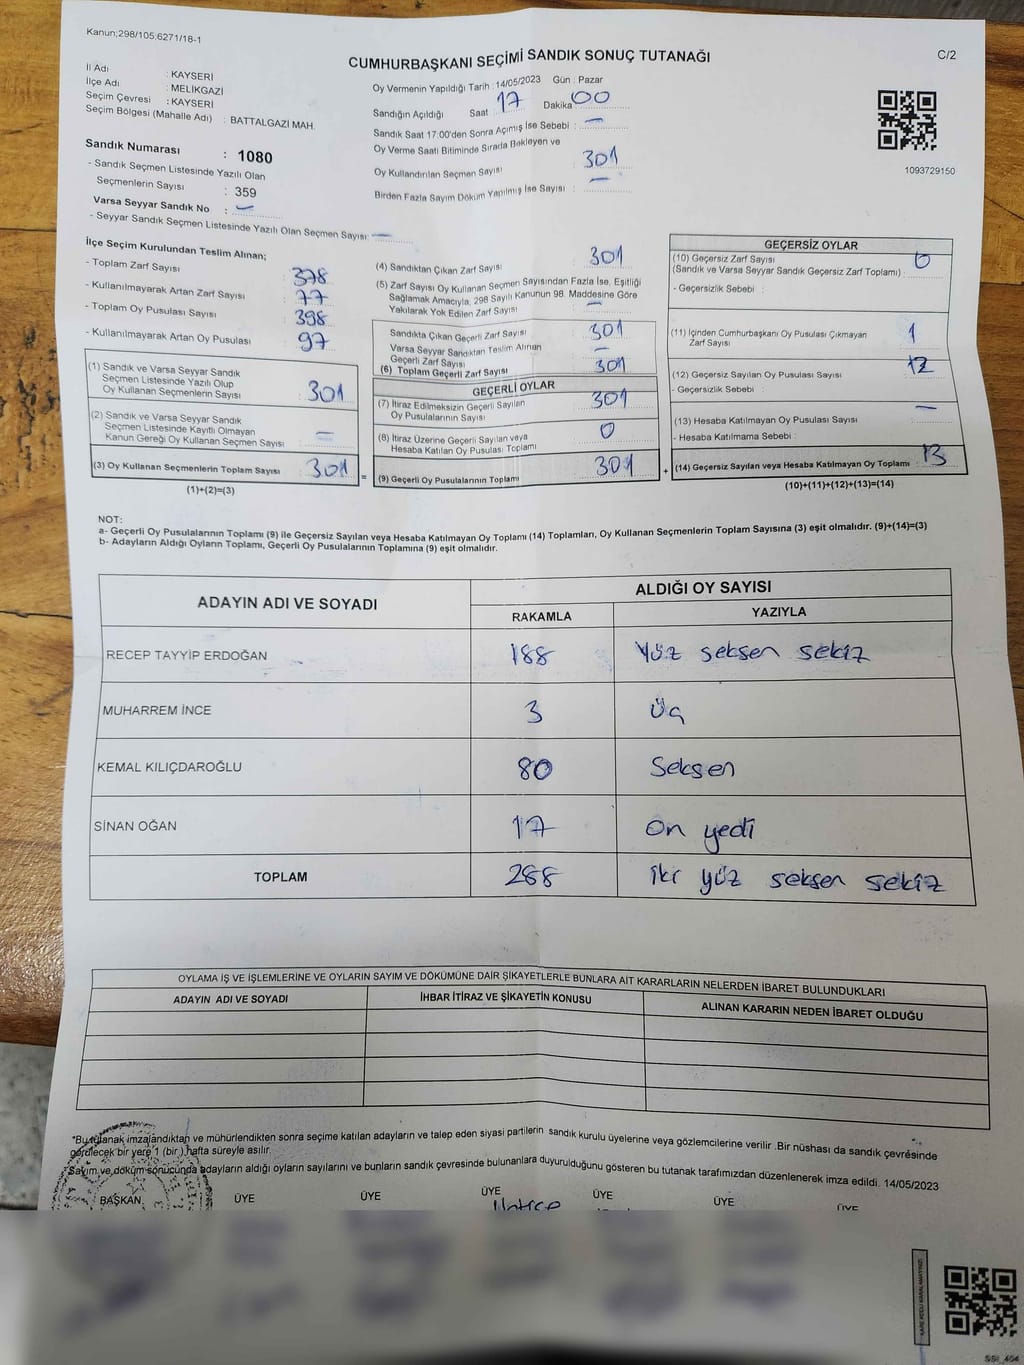 Kanun;298/105,6271/18-1
CUMHURBAŞKANI SEÇİMİ SANDIK SONUÇ TUTANAĞI
C/2
İl Adı : KAYSERİ
İlçe Adı : MELİKGAZİ
Seçim Çevresi : KAYSERİ
Seçim Bölgesi (Mahalle Adı) : BATTALGAZİ MAH.
Sandık Numarası : 1080
- Sandık Seçmen Listesinde Yazılı Olan
Seçmenlerin Sayısı : 359
Varsa Seyyar Sandık No : —
- Seyyar Sandık Seçmen Listesinde Yazılı Olan Seçmen Sayısı: —
Oy Vermenin Yapıldığı Tarih : 14/05/2023 Gün : Pazar
Sandığın Açıldığı Saat : 17 Dakika : 00
Sandık Saat 17:00'den Sonra Açımış İse Sebebi : —
Oy Verme Saati Bitiminde Sırada Bekleyen ve
Oy Kullandırılan Seçmen Sayısı : 301
Birden Fazla Sayım Döküm Yapılmış İse Sayısı : —
1093729150
İlçe Seçim Kurulundan Teslim Alınan;
- Toplam Zarf Sayısı : 378
- Kullanılmayarak Artan Zarf Sayısı : 77
- Toplam Oy Pusulası Sayısı : 398
- Kullanılmayarak Artan Oy Pusulası : 97
(1) Sandık ve Varsa Seyyar Sandık
Seçmen Listesinde Yazılı Olup
Oy Kullanan Seçmenlerin Sayısı : 301
(2) Sandık ve Varsa Seyyar Sandık
Seçmen Listesinde Kayıtlı Olmayan
Kanun Gereği Oy Kullanan Seçmen Sayısı : —
(3) Oy Kullanan Seçmenlerin Toplam Sayısı : 301
(1)+(2)=(3)
=
(4) Sandıktan Çıkan Zarf Sayısı : 301
(5) Zarf Sayısı Oy Kullanan Seçmen Sayısından Fazla İse, Eşitliği
Sağlamak Amacıyla, 298 Sayılı Kanunun 98. Maddesine Göre
Yakılarak Yok Edilen Zarf Sayısı : —
Sandıkta Çıkan Geçerli Zarf Sayısı : 301
Varsa Seyyar Sandıktan Teslim Alınan
Geçerli Zarf Sayısı : —
(6) Toplam Geçerli Zarf Sayısı : 301
GEÇERLİ OYLAR
(7) İtiraz Edilmeksizin Geçerli Sayılan
Oy Pusulalarının Sayısı : 301
(8) İtiraz Üzerine Geçerli Sayılan veya
Hesaba Katılan Oy Pusulası Toplamı : 0
(9) Geçerli Oy Pusulalarının Toplamı : 301
+
GEÇERSİZ OYLAR
(10) Geçersiz Zarf Sayısı
(Sandık ve Varsa Seyyar Sandık Geçersiz Zarf Toplamı) : 0
- Geçersizlik Sebebi :
(11) İçinden Cumhurbaşkanı Oy Pusulası Çıkmayan
Zarf Sayısı : 1
(12) Geçersiz Sayılan Oy Pusulası Sayısı : 12
- Geçersizlik Sebebi :
(13) Hesaba Katılmayan Oy Pusulası Sayısı : —
- Hesaba Katılmama Sebebi :
(14) Geçersiz Sayılan veya Hesaba Katılmayan Oy Toplamı : 13
(10)+(11)+(12)+(13)=(14)
NOT:
a- Geçerli Oy Pusulalarının Toplamı (9) ile Geçersiz Sayılan veya Hesaba Katılmayan Oy Toplamı (14) Toplamları, Oy Kullanan Seçmenlerin Toplam Sayısına (3) eşit olmalıdır. (9)+(14)=(3)
b- Adayların Aldığı Oyların Toplamı, Geçerli Oy Pusulalarının Toplamına (9) eşit olmalıdır.
ADAYIN ADI VE SOYADI
ALDIĞI OY SAYISI
RAKAMLA YAZIYLA
RECEP TAYYİP ERDOĞAN 188 Yüz seksen sekiz
MUHARREM İNCE 3 Üç
KEMAL KILIÇDAROĞLU 80 Seksen
SİNAN OĞAN 17 On yedi
TOPLAM 288 iki yüz seksen sekiz
OYLAMA İŞ VE İŞLEMLERİNE VE OYLARIN SAYIM VE DÖKÜMÜNE DAİR ŞİKAYETLERLE BUNLARA AİT KARARLARIN NELERDEN İBARET BULUNDUKLARI
ADAYIN ADI VE SOYADI İHBAR İTİRAZ VE ŞİKAYETİN KONUSU ALINAN KARARIN NEDEN İBARET OLDUĞU
*Bu tutanak imzalandıktan ve mühürlendikten sonra seçime katılan adayların ve talep eden siyasi partilerin sandık kurulu üyelerine veya gözlemcilerine verilir .Bir nüshası da sandık çevresinde
görülecek bir yere 1 (bir ) hafta süreyle asılır.
Sayım ve döküm sonucunda adayların aldığı oyların sayılarını ve bunların sandık çevresinde bulunanlara duyurulduğunu gösteren bu tutanak tarafımızdan düzenlenerek imza edildi. 14/05/2023
BAŞKAN ÜYE ÜYE ÜYE ÜYE ÜYE ÜYE
Hatice
KARE KODU KARALAMAYINIZ!